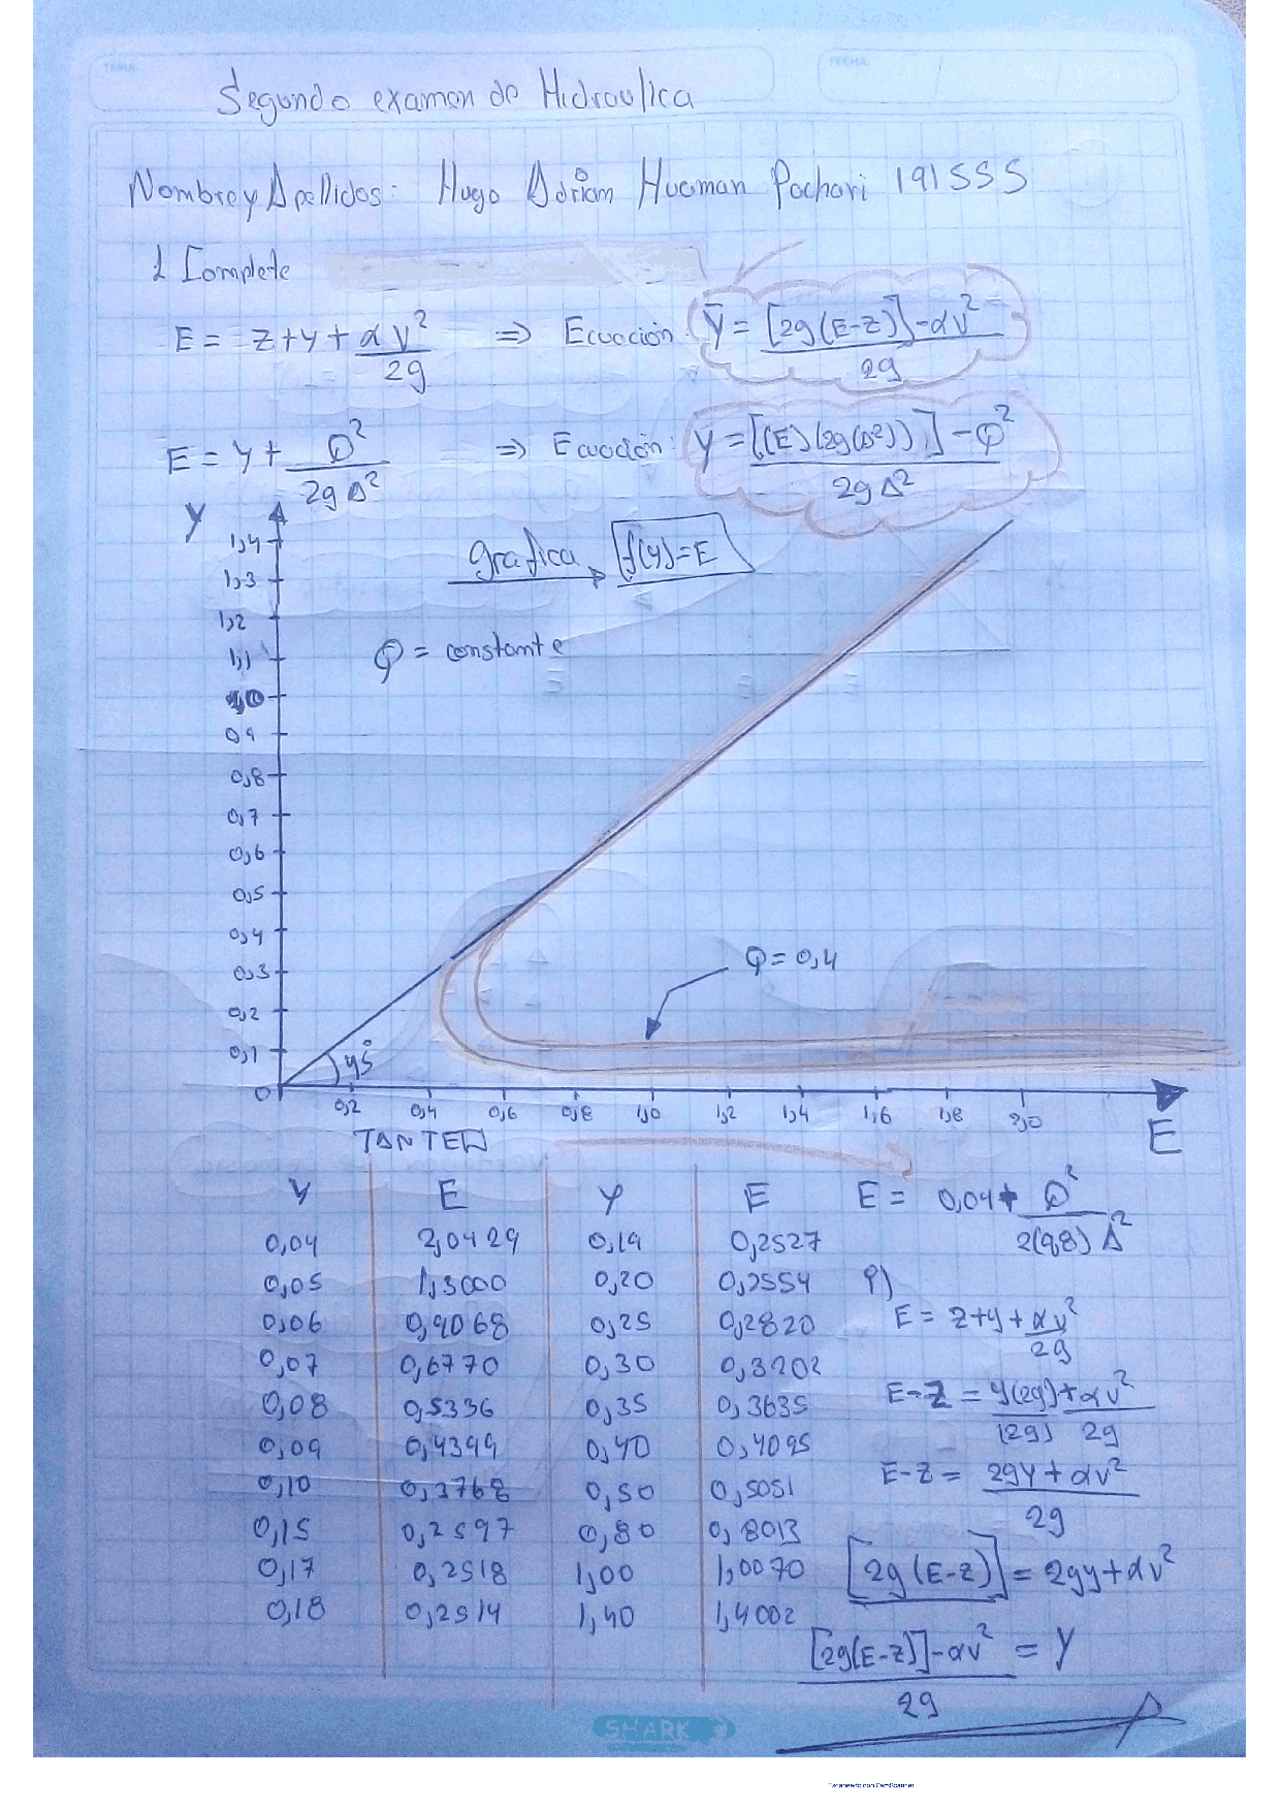 TEMA:
FECHA:
Segundo examen de Hidraulica
Nombre y Apellidos: Hugo Adrian Huaman Pachari 191555
1 Complete
E = z+y+ αv²/2g ⇒ Ecuación: y = [2g(E-z)]-αv²/2g
E = y+ Q²/2gA² ⇒ Ecuación: y = [(E)(2g(A²))]-Q²/2gA²
Y
grafica → f(y)=E
Q = constante
1,4
1,3
1,2
1,1
1,0
0,9
0,8
0,7
0,6
0,5
0,4
0,3
0,2
0,1
0
Q = 0,4
45°
0,2 0,4 0,6 0,8 1,0 1,2 1,4 1,6 1,8 2,0
E
TANTEO
y E y E E = 0,04+ Q²/2(9,8)A²
0,04 2,0429 0,19 0,2527
0,05 1,3000 0,20 0,2554
0,06 0,9068 0,25 0,2820
0,07 0,6770 0,30 0,3202
0,08 0,5336 0,35 0,3635
0,09 0,4399 0,40 0,4095
0,10 0,3768 0,50 0,5051
0,15 0,2597 0,80 0,8013
0,17 0,2518 1,00 1,0070
0,18 0,2514 1,40 1,4002
E = z+y+ αv²/2g
E-z = y(2g)/(2g) + αv²/2g
E-z = 2gy+αv²/2g
[2g(E-z)] = 2gy+αv²
[2g(E-z)]-αv²/2g = y
SHARK
Escaneado con CamScanner